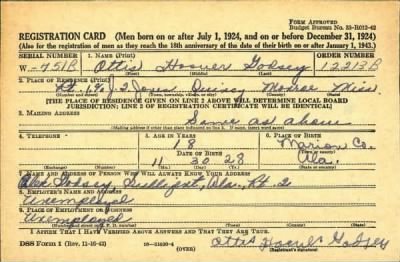 FORM APPROVED
Budget Bureau No. 33-R013-42
REGISTRATION CARD (Men born on or after July 1, 1924, and on or before December 31, 1924)
(Also for the registration of men as they reach the 18th anniversary of the date of their birth on or after January 1, 1943.)
SERIAL NUMBER 1. NAME (Print) ORDER NUMBER
W-751B Ottis Hoover Godsey 12213B
2. PLACE OF RESIDENCE (Print)
Rt. 1 % J. I. Jones Quincy Monroe Miss.
[THE PLACE OF RESIDENCE GIVEN ON LINE 2 ABOVE WILL DETERMINE LOCAL BOARD
JURISDICTION; LINE 2 OF REGISTRATION CERTIFICATE WILL BE IDENTICAL]
3. MAILING ADDRESS
Same as above
[Mailing address if other than place indicated on line 2. If same, insert word same]
4. TELEPHONE 5. AGE IN YEARS 6. PLACE OF BIRTH
18 Marion Co.
DATE OF BIRTH
11 30 28 Ala.
7. NAME AND ADDRESS OF PERSON WHO WILL ALWAYS KNOW YOUR ADDRESS
Godsey, Sulligent, Ala. Rt. 2
8. EMPLOYER'S NAME AND ADDRESS
Unemployed
9. PLACE OF EMPLOYMENT OR BUSINESS
Unemployed
I AFFIRM THAT I HAVE VERIFIED ABOVE ANSWERS AND THAT THEY ARE TRUE.
DSS Form 1 (Rev. 11-16-42) (OVER) Ottis Hoover Godsey
(Registrant's signature)